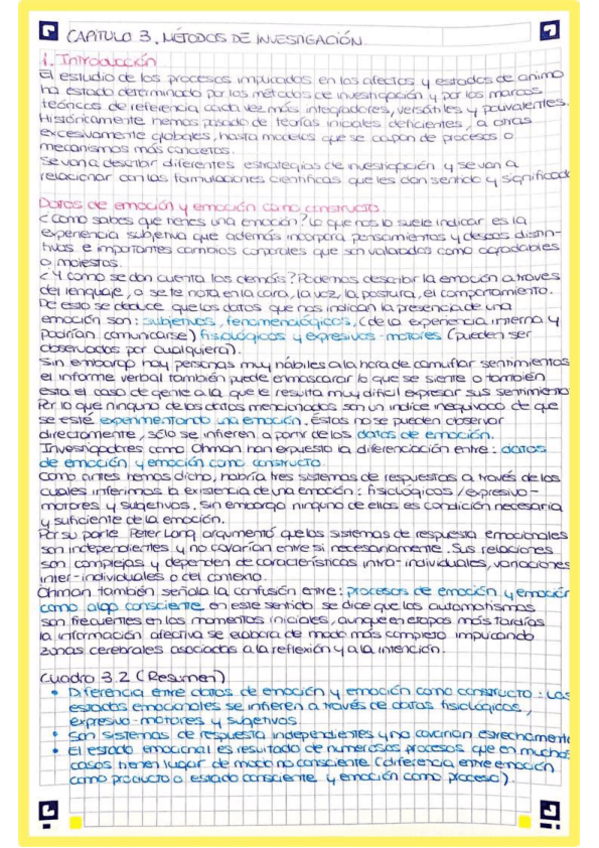 CAPÍTULO 3. MÉTODOS DE INVESTIGACIÓN
1. Introducción
El estudio de los procesos implicados en los afectos y estados de animo
ha estado determinado por los métodos de investigación y por los marcos
teóricos de referencia cada vez más integradores, versátiles y polivalentes.
Históricamente hemos pasado de teorías iniciales deficientes, a otras
excesivamente globales, hasta modelos que se ocupan de procesos o
mecanismos más concretos.
Se van a describir diferentes estrategias de investigación y se van a
relacionar con las formulaciones científicas que les dan sentido y significado
Datos de emoción y emoción como constructo.
¿Como sabes que tienes una emoción? Lo que nos lo suele indicar es la
experiencia subjetiva que además incorpora pensamientos y deseos distin-
tivos e importantes cambios corporales que son valorados como agradables
o molestos.
¿Y como se dan cuenta los demás? Podemos describir la emoción a traves
del lenguaje, o se te nota en la cara, la voz, la postura, el comportamiento.
De esto se deduce que los datos que nos indican la presencia de una
emoción son: subjetivos, fenomenológicos, (de la experiencia interna y
podrían comunicarse) fisiológicos y expresivos-motores (pueden ser
observados por cualquiera).
Sin embargo hay personas muy hábiles a la hora de camuflar sentimientos
el informe verbal también puede enmascarar lo que se siente o también
esta el caso de gente a la que le resulta muy difícil expresar sus sentimiento
Por lo que ninguno de los datos mencionados son un indice inequivoco de que
se esté experimentando una emoción. Éstas no se pueden observar
directamente, sólo se infieren a partir de los datos de emoción.
Investigadores como Ohman han expuesto la diferenciación entre: datos
de emoción y emoción como constructo.
Como antes hemos dicho, habría tres sistemas de respuestas a través de los
cuales inferimos la existencia de una emoción: fisiológicos/expresivo-
motores y subjetivos. Sin embargo ninguno de ellos es condición necesaria
y suficiente de la emoción.
Por su parte Peter Lang argumentó que los sistemas de respuesta emocionales
son independientes y no covarían entre si necesariamente. Sus relaciones
son complejas y dependen de características intra-individuales, variaciones
inter-individuales o del contexto.
Ohman también señala la confusión entre: procesos de emoción y emoción
como algo consciente en este sentido se dice que los automatismos
son frecuentes en los momentos iniciales, aunque en etapas más tardías
la información afectiva se elabora de modo más completo implicando
zonas cerebrales asociadas a la reflexión y a la intención.
Cuadro 3.2 (Resumen)
• Diferencia entre datos de emoción y emoción como constructo: Los
estados emocionales se infieren a través de datos fisiológicos,
expresivo-motores y subjetivos
• Son sistemas de respuesta independientes y no covarían estrechamente
• El estado emocional es resultado de numerosos procesos que en muchos
casos tienen lugar de modo no consciente (diferencia entre emoción
como producto o estado consciente y emoción como proceso).